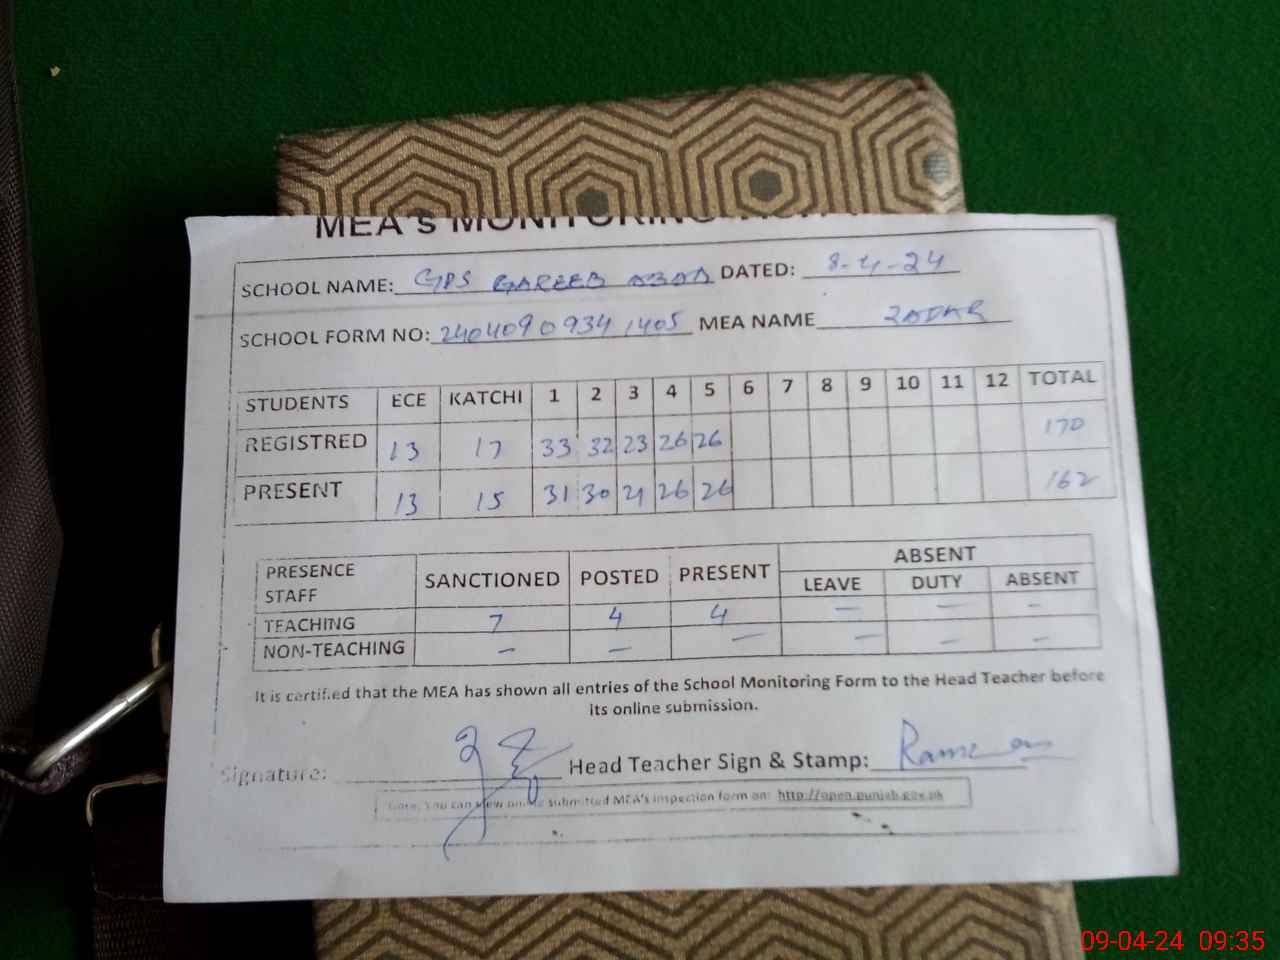 MEA's MONITORING
SCHOOL NAME: GPS GAREEB ABAD DATED: 8-4-24
SCHOOL FORM NO: 2404090934 1405 MEA NAME
STUDENTS ECE KATCHI 1 2 3 4 5 6 7 8 9 10 11 12 TOTAL
REGISTRED 13 17 33 32 23 26 26 170
PRESENT 13 15 31 30 21 26 26 162
PRESENCE STAFF SANCTIONED POSTED PRESENT ABSENT
LEAVE DUTY ABSENT
TEACHING 7 4 4 — — -
NON-TEACHING - - — — - -
It is certified that the MEA has shown all entries of the School Monitoring Form to the Head Teacher before
its online submission.
Signature: Head Teacher Sign & Stamp:
Note: You can view online submitted MEA's inspection form on: http://open.punjab.gov.pk
09-04-24 09:35